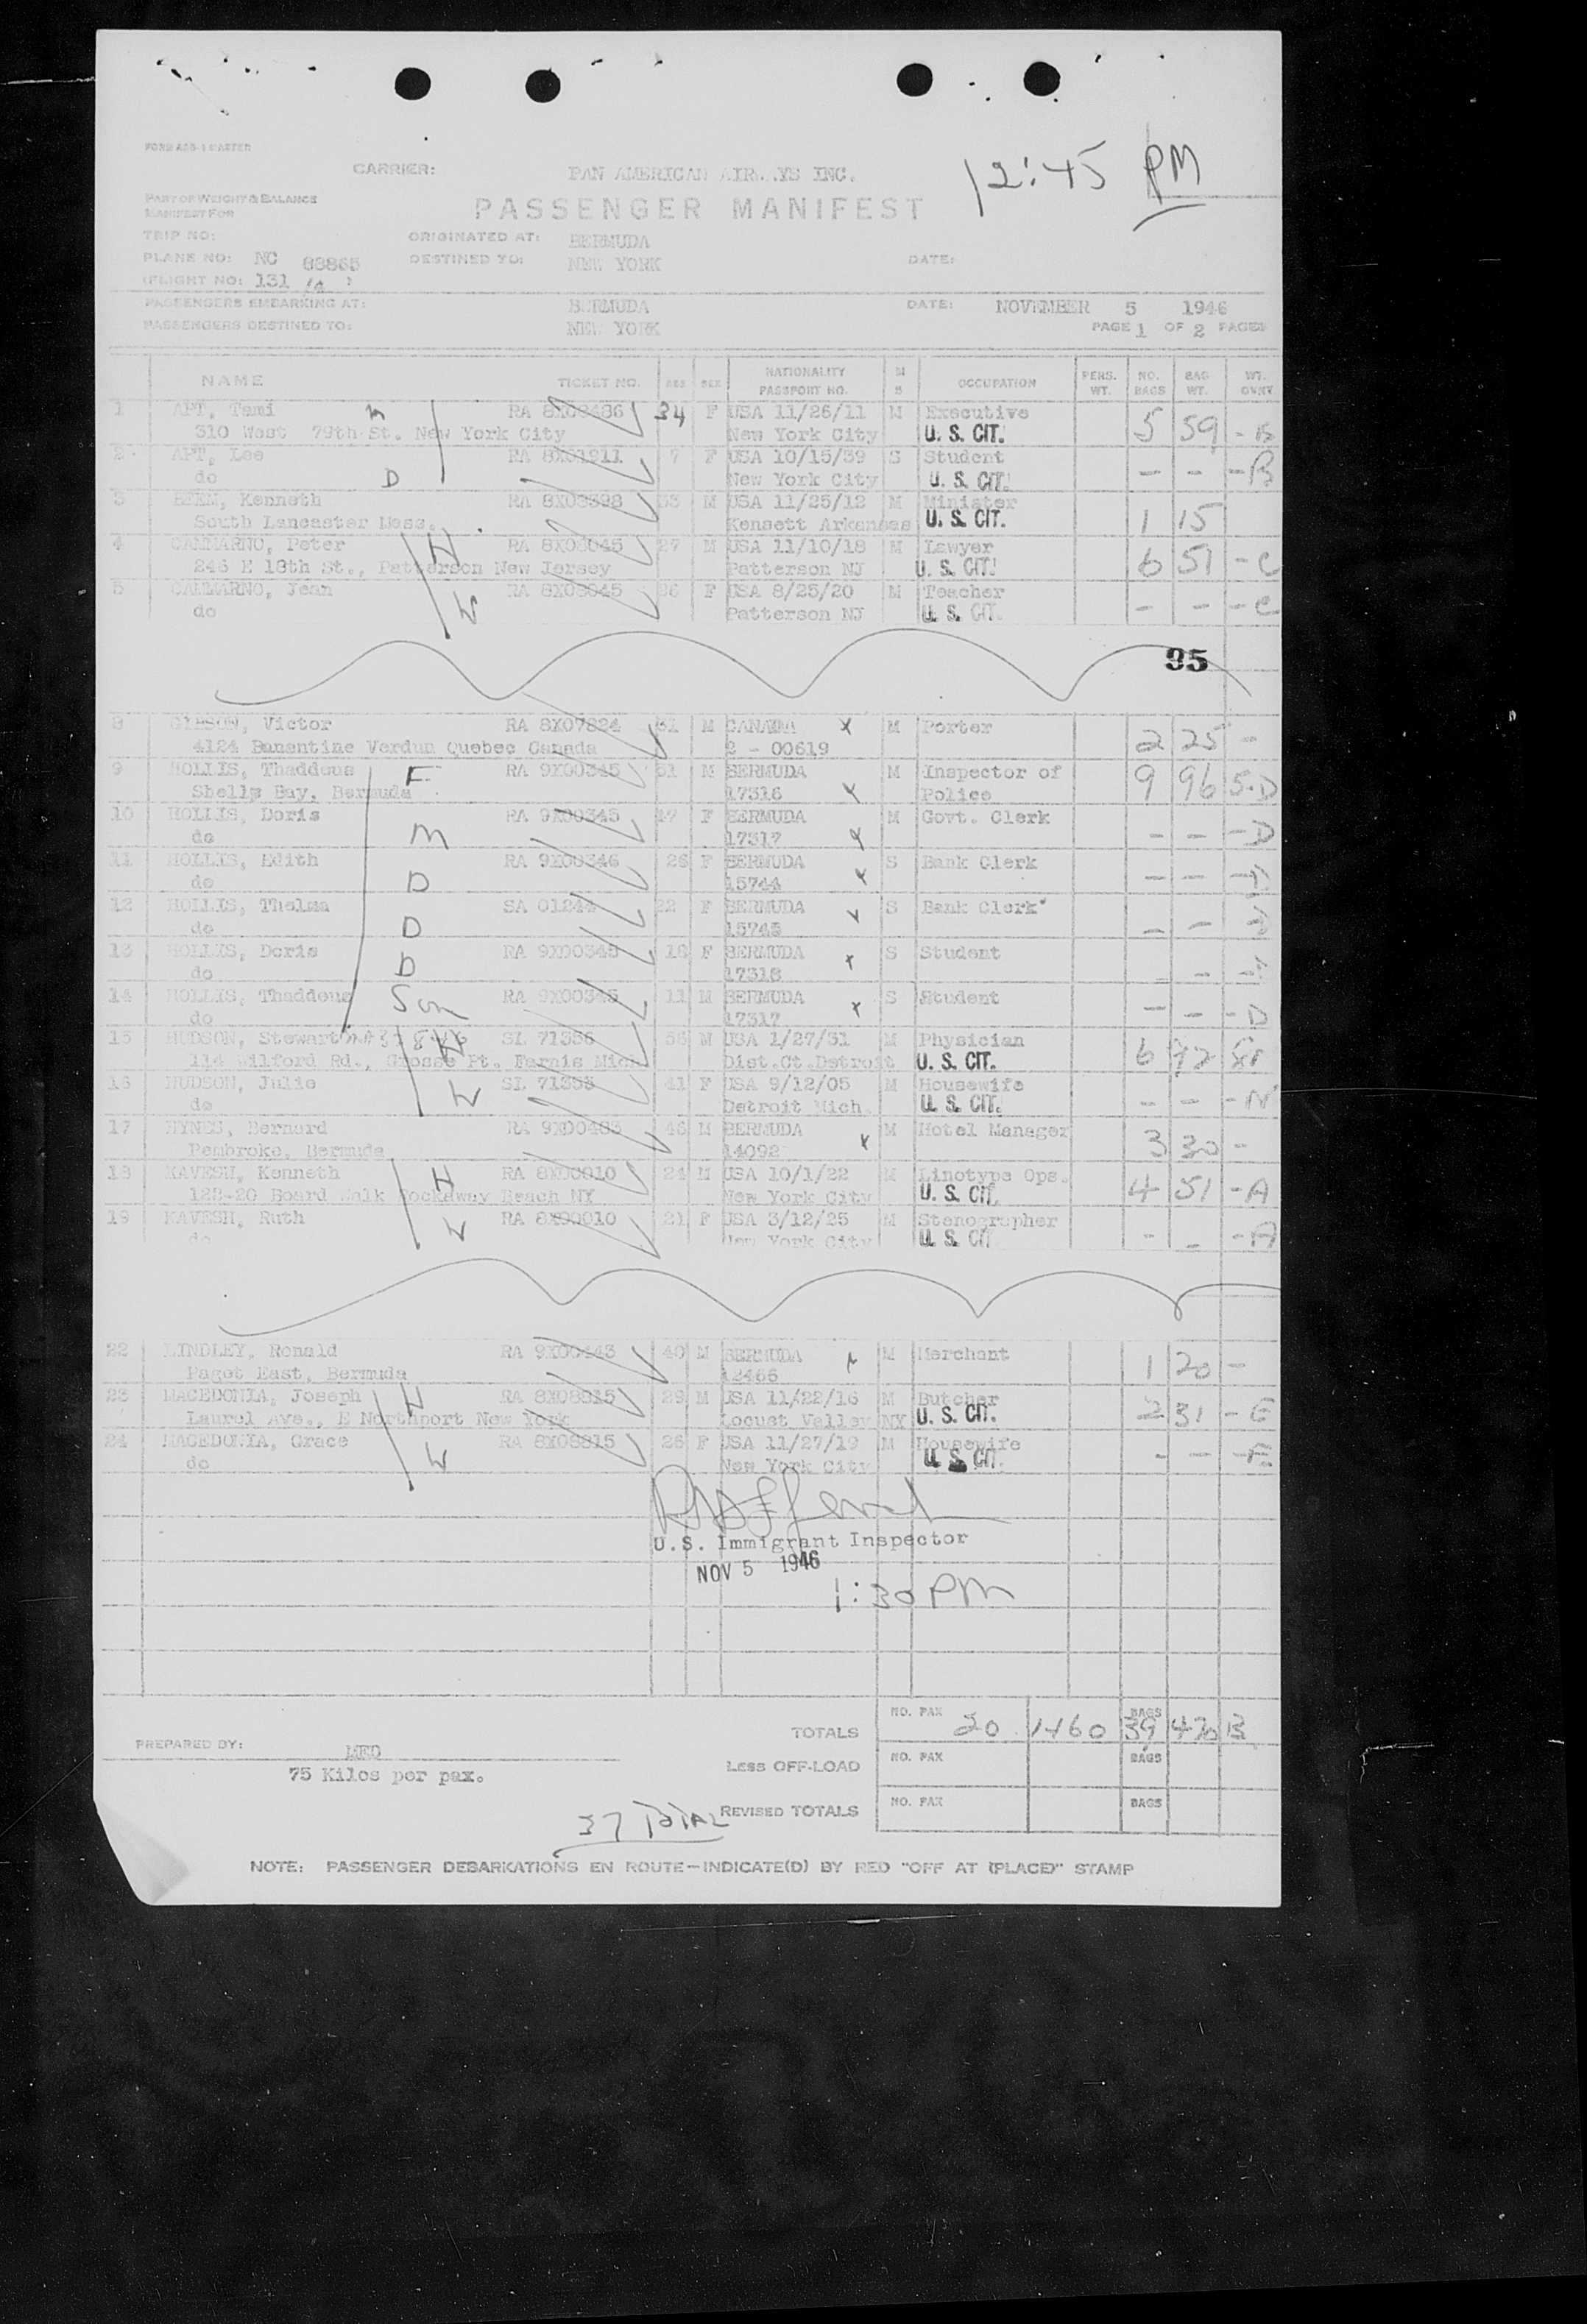 FORM ASB-1 MASTER
CARRIER: PAN AMERICAN AIRWAYS INC. 12:45 PM
PART OF WEIGHT & BALANCE
MANIFEST FOR
PASSENGER MANIFEST
TRIP NO: ORIGINATED AT: BERMUDA
PLANE NO: NC 88865 DESTINED TO: NEW YORK DATE:
(FLIGHT NO: 131 )
PASSENGERS EMBARKING AT: BERMUDA DATE: NOVEMBER 5 1946
PASSENGERS DESTINED TO: NEW YORK PAGE 1 OF 2 PAGES
NAME TICKET NO. AGE SEX NATIONALITY PASSPORT NO. M S OCCUPATION PERS. WT. NO. BAGS BAG WT. WT. OVWT
1 APT, Temi m RA 8X08486 34 F USA 11/26/11 M Executive 5 59 - B
310 West 79th St. New York City New York City U. S. CIT.
2 APT, Lee RA 8X01211 7 F USA 10/15/39 S Student - - - B
do D New York City U. S. CIT.
3 BEEM, Kenneth RA 8X08398 33 M USA 11/25/12 M Minister 1 15
South Lancaster Mass. Kensett Arkansas U. S. CIT.
4 CAMMARNO, Peter H RA 8X08045 27 M USA 11/10/18 M Lawyer 6 51 - C
246 E 18th St., Patterson New Jersey Patterson NJ U. S. CIT.
5 CAMMARNO, Jean W RA 8X08045 26 F USA 8/25/20 M Teacher - - - C
do Patterson NJ U. S. CIT.
95
8 GIBSON, Victor RA 8X07824 31 M CANADA x M Porter 2 25 -
4124 Banantine Verdun Quebec Canada 2 - 00619
9 HOLLIS, Thaddeus F RA 9X00345 51 M BERMUDA M Inspector of 9 96 5-D
Shelly Bay, Bermuda 17316 x Police
10 HOLLIS, Doris RA 9X00345 47 F BERMUDA M Govt. Clerk - - - D
do M 17317 x
11 HOLLIS, Edith RA 9X00346 26 F BERMUDA S Bank Clerk - - -
do D 15744 x
12 HOLLIS, Thelma SA 01244 22 F BERMUDA x S Bank Clerk - - -
do D 15745
13 HOLLIS, Doris RA 9X00345 18 F BERMUDA x S Student - - -
do D 17318
14 HOLLIS, Thaddeus Son RA 9X00345 11 M BERMUDA x S Student - - - D
do 17317
15 HUDSON, Stewart H SL 71356 56 M USA 1/27/31 M Physician 6 92
114 Wilford Rd., Grosse Pt. Farmis Mich Dist.Ct.Detroit U. S. CIT.
16 HUDSON, Julie W SL 71355 41 F USA 9/12/05 M Housewife - - - N
do Detroit Mich. U. S. CIT.
17 HYNES, Bernard RA 9X00483 46 M BERMUDA x M Hotel Manager 3 30 -
Pembroke, Bermuda 14092
18 KAVESH, Kenneth H RA 8X00010 24 M USA 10/1/22 M Linotype Ops. 4 51 - A
122-20 Board Walk Rockaway Beach NY New York City U. S. CIT.
19 KAVESH, Ruth W RA 8X00010 21 F USA 3/12/25 M Stenographer - - - A
do New York City U. S. CIT
22 LINDLEY, Ronald RA 9X00443 40 M BERMUDA x M Merchant 1 20 -
Paget East, Bermuda 12466
23 MACEDONIA, Joseph H RA 8X08815 29 M USA 11/22/16 M Butcher 2 31 - E
Laurel Ave., E Northport New York Locust Valley NY U. S. CIT.
24 MACEDONIA, Grace W RA 8X08815 26 F USA 11/27/19 M Housewife - - - E
do New York City U. S. CIT.
U.S. Immigrant Inspector
NOV 5 1946
1:30 PM
TOTALS NO. PAX 20 1460 BAGS 39 470 B
PREPARED BY: MEO Less OFF-LOAD NO. PAX BAGS
75 Kilos per pax.
37 TOTAL REVISED TOTALS NO. PAX BAGS
NOTE: PASSENGER DEBARKATIONS EN ROUTE-INDICATE(D) BY RED "OFF AT (PLACE)" STAMP